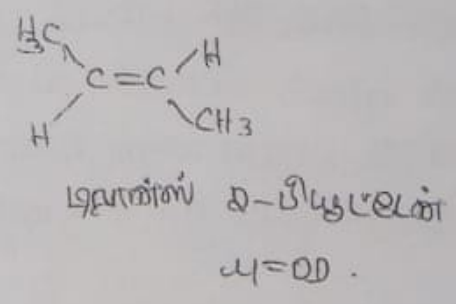 H3C
H
C=C
H
CH3
டிரான்ஸ் 2-பியூட்டீன்
μ=0D.